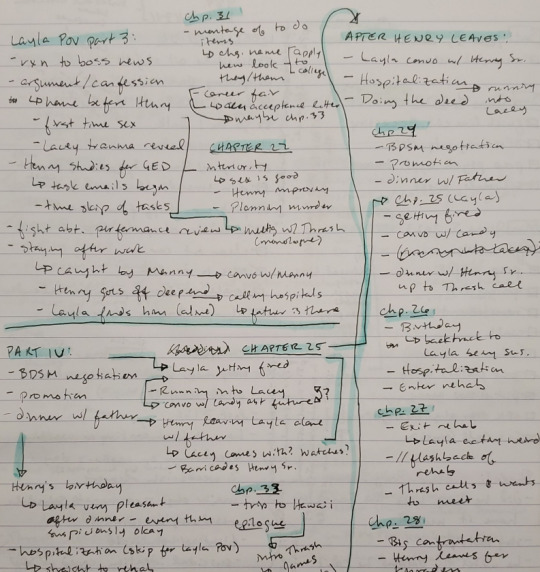 Layla POV part 3:
- rxn to boss news
- argument/confession
↳ home before Henry
- first time sex
- Lacey trauma reveal
- Henry studies for GED
↳ task emails began
- time skip of tasks
- fight abt. performance review
- staying after work
↳ caught by Manny → convo w/Manny
- Henry goes off deep end → calling hospitals
- Layla finds him (alive) ↳ father is there
chp. 31
- montage of to do
items
↳ chg. name
new look
they/them
apply
to
college
- career fair
↳ acceptance letter
↳ maybe chp. 33
CHAPTER 27
- interiority
↳ sex is good
- Henry improving
- Planning murder
↳ meets w/ Thrash
(monologue)
PART IV:
- BDSM negotiation
- promotion
- dinner w/ father
Henry's birthday
↳ Layla very pleasant
after dinner - everything
suspiciously okay
- hospitalization (skip for Layla POV)
↳ straight to rehab
CHAPTER 25
↳ Layla getting fired
- Running into Lacey
convo w/ Candy abt future ?
↳ Henry leaving Layla alone
w/ father
↳ Lacey comes with? watches?
- Barricades Henry Sr.
chp. 33
- trip to Hawaii
epilogue
intro Thrash
↳ James
AFTER HENRY LEAVES:
- Layla convo w/ Henry Sr.
- Hospitalization → running
into
Lacey
- Doing the deed
chp 24
- BDSM negotiation
- promotion
- dinner w/ Father
↳ Chp. 25 (Layla)
- getting fired
- convo w/ Candy
- dinner w/ Henry Sr.
up to Thrash call
chp. 26
- Birthday
↳ backtrack to
Layla being sus.
- Hospitalization
- Enter rehab
chp. 27
- Exit rehab
↳ Layla acting weird
- // flashback of
rehab
- Thrash calls & wants
to meet
chp. 28:
- Big confrontation
- Henry leaves for